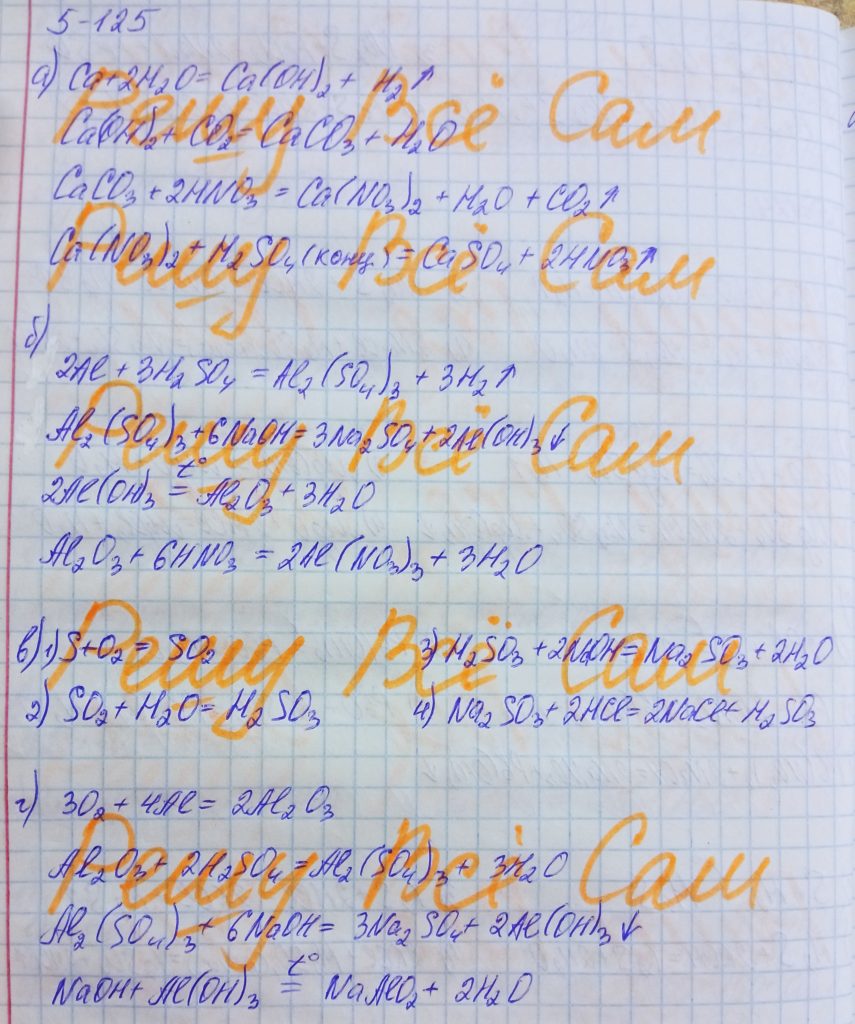 5-125
а) Ca+2H₂O = Ca(OH)₂ + H₂↑
Ca(OH)₂ + CO₂ = CaCO₃ + H₂O
CaCO₃ + 2HNO₃ = Ca(NO₃)₂ + H₂O + CO₂↑
Ca(NO₃)₂ + H₂SO₄(конц) = CaSO₄ + 2HNO₃↑
б)
2Al + 3H₂SO₄ = Al₂(SO₄)₃ + 3H₂↑
Al₂(SO₄)₃ + 6NaOH = 3Na₂SO₄ + 2Al(OH)₃↓
2Al(OH)₃ =t°= Al₂O₃ + 3H₂O
Al₂O₃ + 6HNO₃ = 2Al(NO₃)₃ + 3H₂O
в) 1) S+O₂ = SO₂
2) SO₂ + H₂O = H₂SO₃
3) H₂SO₃ + 2NaOH = Na₂SO₃ + 2H₂O
4) Na₂SO₃ + 2HCl = 2NaCl + H₂SO₃
г) 3O₂ + 4Al = 2Al₂O₃
Al₂O₃ + 2H₂SO₄ = Al₂(SO₄)₃ + 3H₂O
Al₂(SO₄)₃ + 6NaOH = 3Na₂SO₄ + 2Al(OH)₃↓
NaOH + Al(OH)₃ =t°= NaAlO₂ + 2H₂O
Решу Всё Сам
Решу Всё Сам
Решу Всё Сам
Решу Всё Сам
Решу Всё Сам